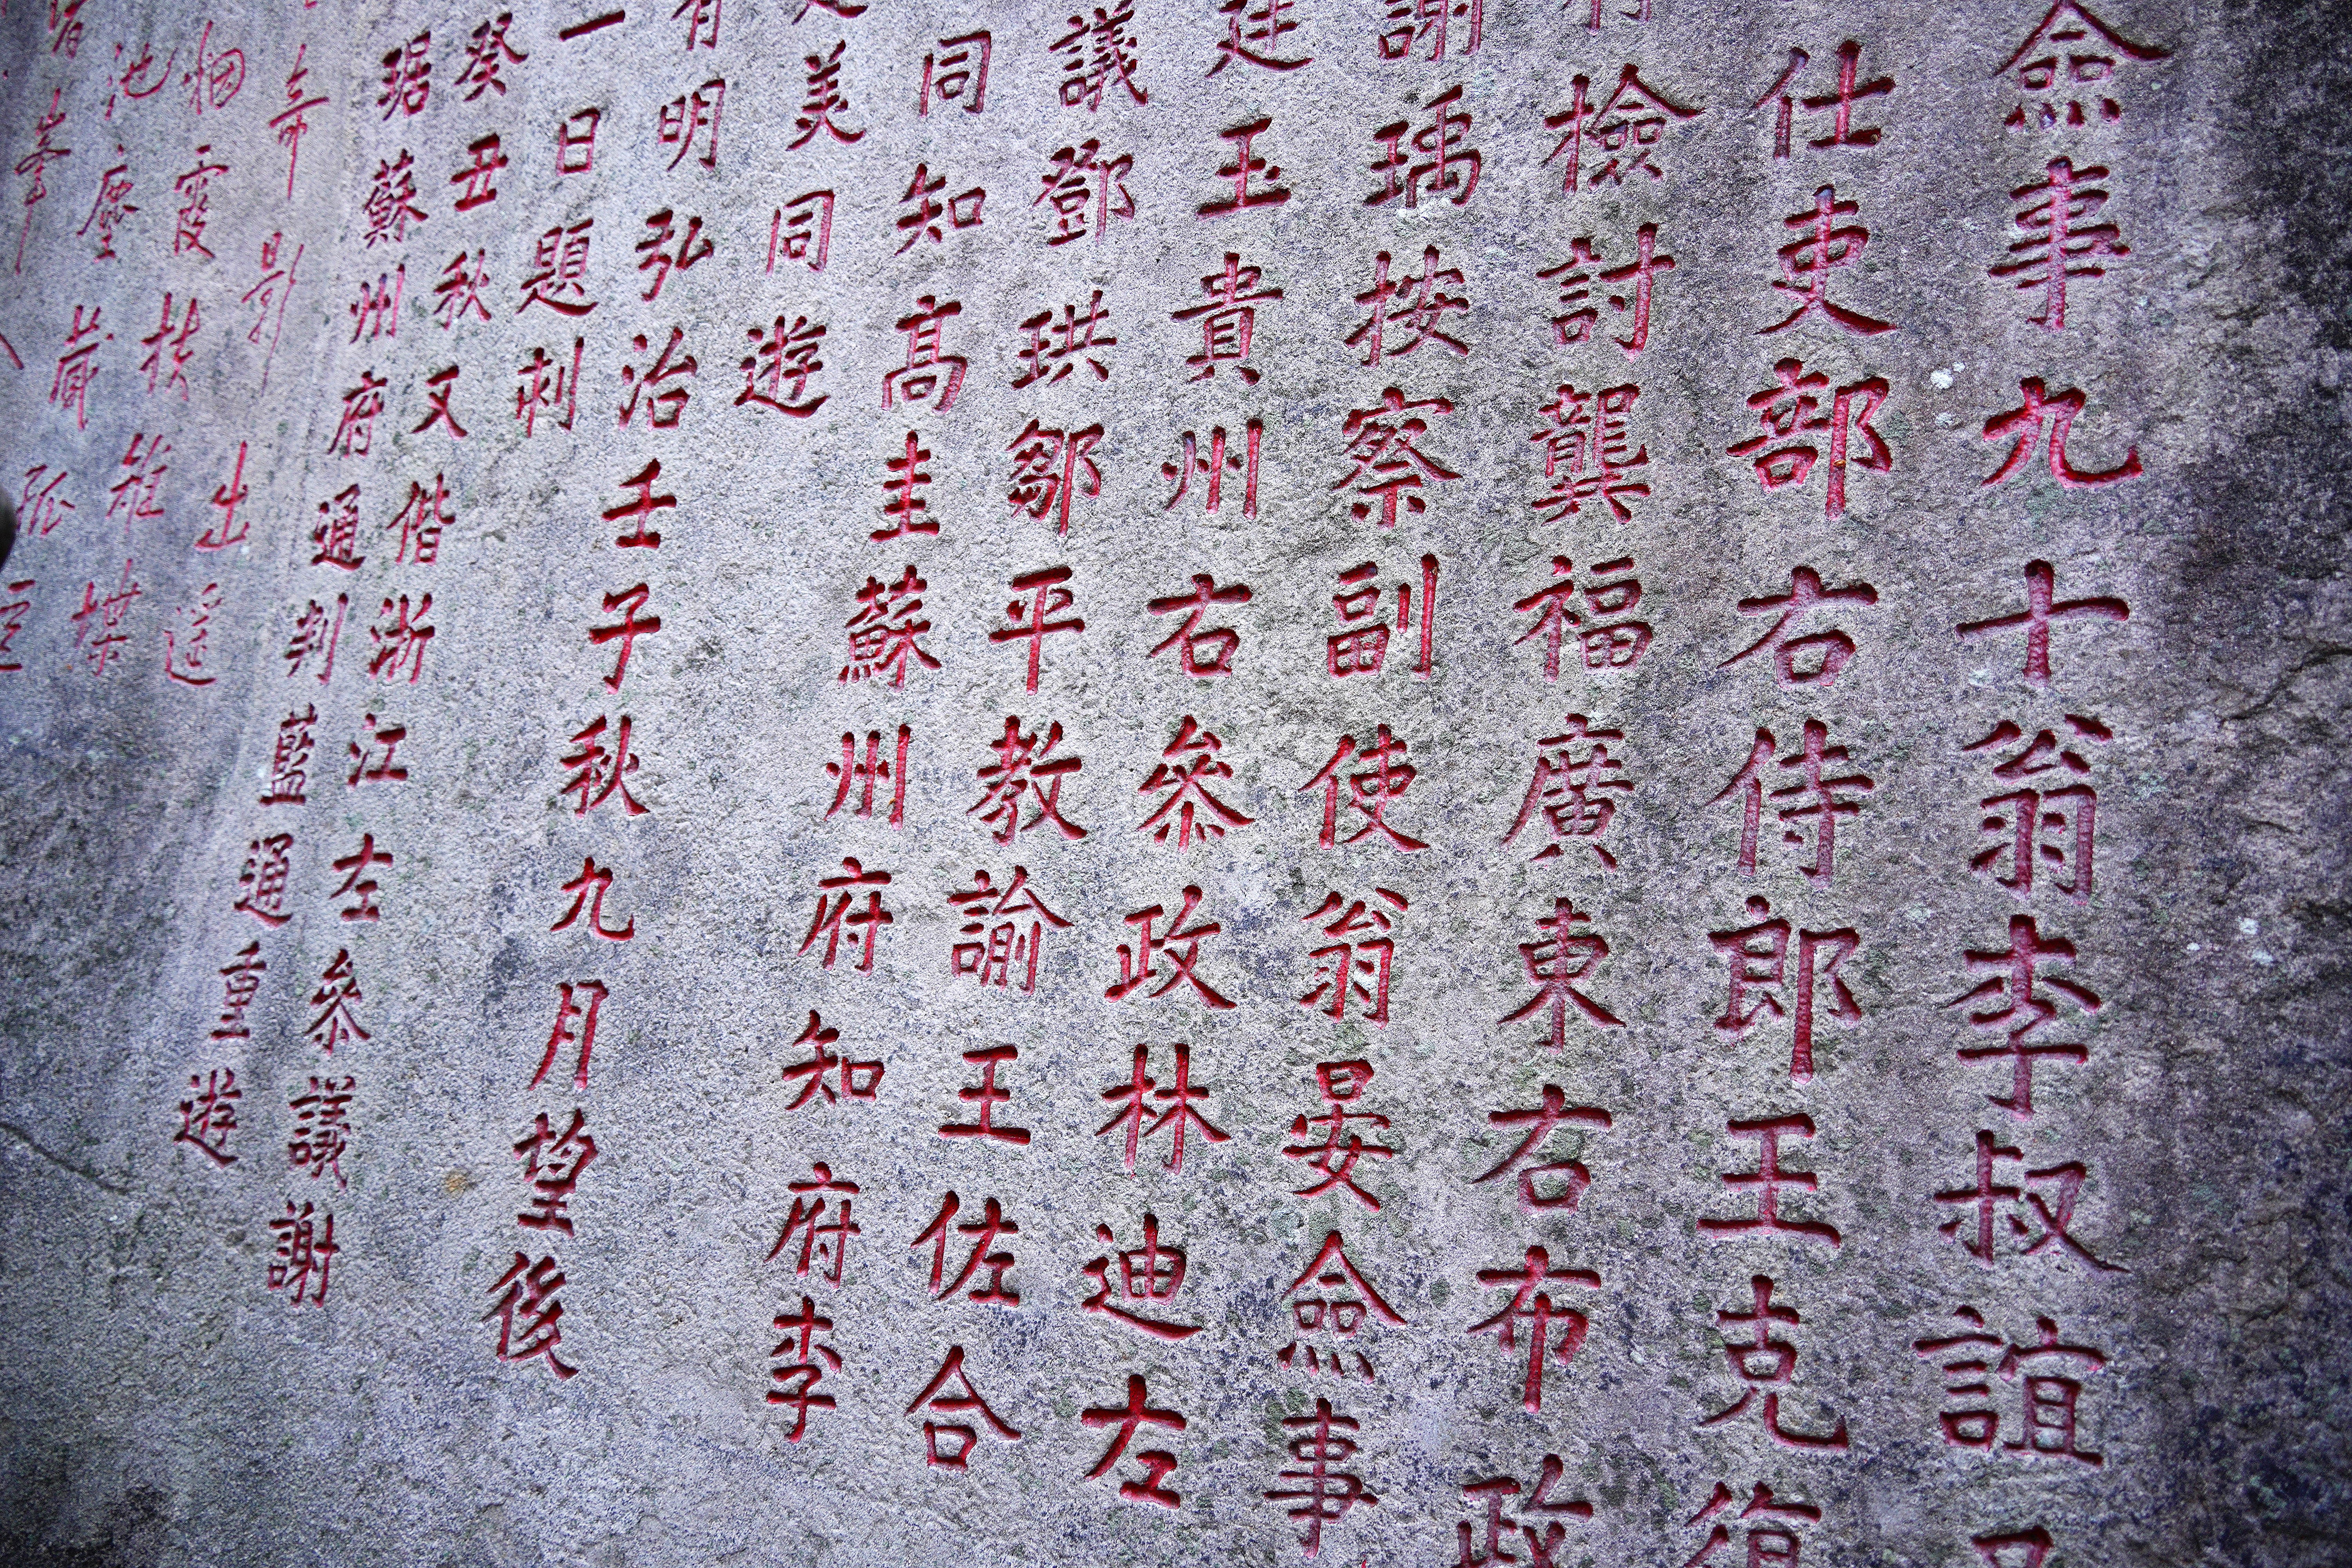 僉事九十翁李叔誼
仕吏部右侍郎王克復
檢討龔福廣東右布政
謝瑀按察副使翁晏僉事
廷玉貴州右參政林迪左
議鄧珙鄒平教諭王佐合
同知高圭蘇州府知府李
美同遊
有明弘治壬子秋九月望後
一日題刺
癸丑秋又偕浙江左參議謝
琚蘇州府通判藍通重遊
奇影出遥
烟霞扶雉堞
池塵藏孤
峯